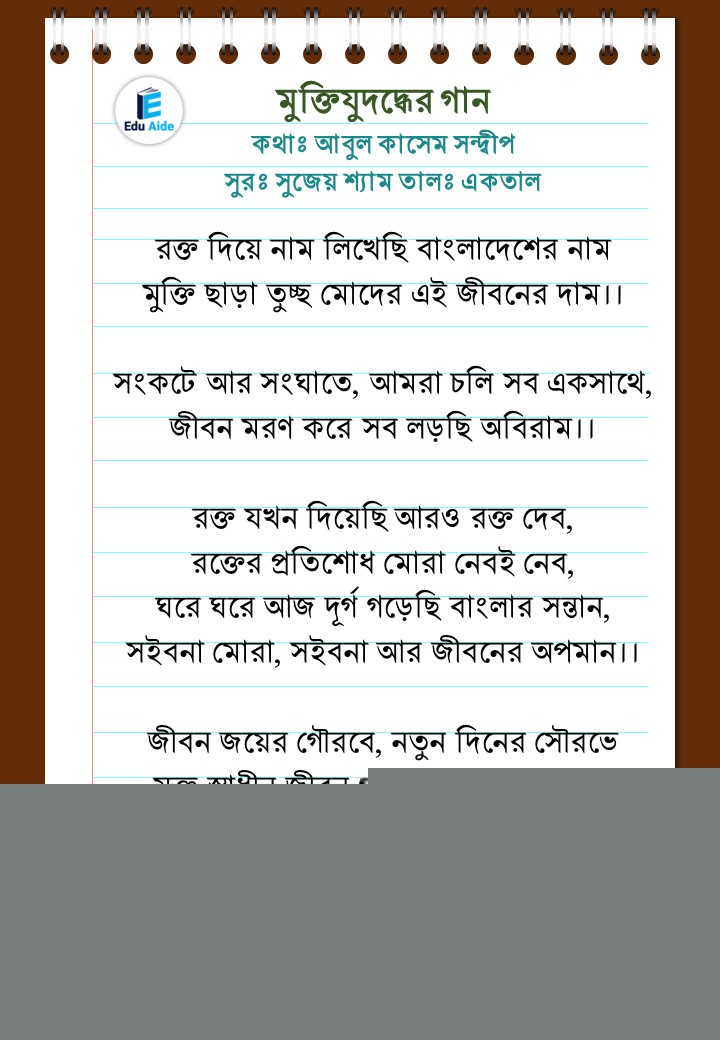 Edu Aide
মুক্তিযুদদ্ধের গান
কথাঃ আবুল কাসেম সন্দ্বীপ
সুরঃ সুজেয় শ্যাম তালঃ একতাল
রক্ত দিয়ে নাম লিখেছি বাংলাদেশের নাম
মুক্তি ছাড়া তুচ্ছ মোদের এই জীবনের দাম।।
সংকটে আর সংঘাতে, আমরা চলি সব একসাথে,
জীবন মরণ করে সব লড়ছি অবিরাম।।
রক্ত যখন দিয়েছি আরও রক্ত দেব,
রক্তের প্রতিশোধ মোরা নেবই নেব,
ঘরে ঘরে আজ দূর্গ গড়েছি বাংলার সন্তান,
সইবনা মোরা, সইবনা আর জীবনের অপমান।।
জীবন জয়ের গৌরবে, নতুন দিনের সৌরভে